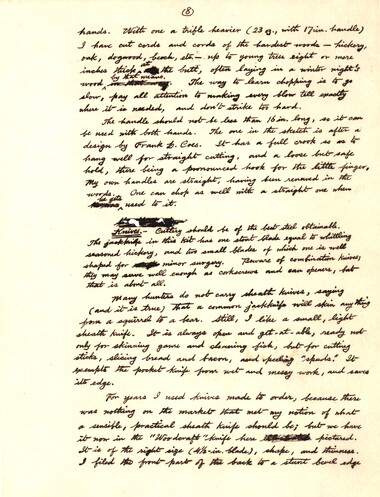 (8)
hands. With one a trifle heavier (23 oz., with 17 in. handle)
I have cut cords and cords of the hardest woods — hickory,
oak, dogwood, beech, etc. — up to young trees eight or more
inches thick at the butt, often laying in a winter night's
wood by that means. The way to learn chopping is to go
slow, pay all attention to making every blow tell exactly
where it is needed, and don't strike too hard.
The handle should not be less than 16 in. long, so it can
be used with both hands. The one in the sketch is after a
design by Frank L. Coes. It has a full crook so as to
hang well for straight cutting, and a loose but safe
hold, there being a pronounced hook for the little finger.
My own handles are straight, having been renewed in the
woods. One can chop as well with a straight one when
he gets used to it.
Knives. — Cutlery should be of the best steel obtainable.
The jackknife in this kit has one stout blade equal to whittling
seasoned hickory, and two small blades of which one is well
shaped for minor surgery. Beware of combination knives;
they may serve well enough as corkscrews and can openers, but
that is about all.
Many hunters do not carry sheath knives, saying
(and it is true) that a common jackknife will skin anything
from a squirrel to a bear. Still, I like a small, light
sheath knife. It is always open and get-at-able, ready not
only for skinning game and cleaning fish, but for cutting
sticks, slicing bread and bacon, and peeling "spuds". It
exempts the pocket knife from wet and messy work, and saves
its edge.
For years I used knives made to order, because there
was nothing on the market that met my notion of what
a sensible, practical sheath knife should be; but we have
it now in the "Woodcraft" knife here pictured.
It is of the right size (4½-in. blade), shape, and thinness.
I filed the front part of the back to a stunt bevel edge